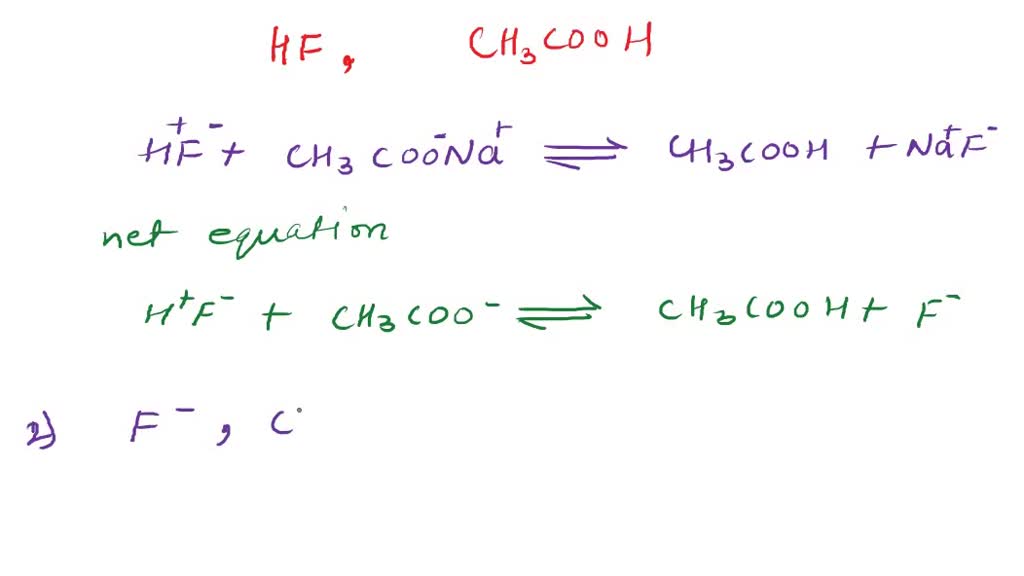 HF, CH₃COOH
H⁺F⁻ + CH₃COO⁻Na⁺ ⇌ CH₃COOH + Na⁺F⁻
net equation
H⁺F⁻ + CH₃COO⁻ ⇌ CH₃COOH + F⁻
2) F⁻, C